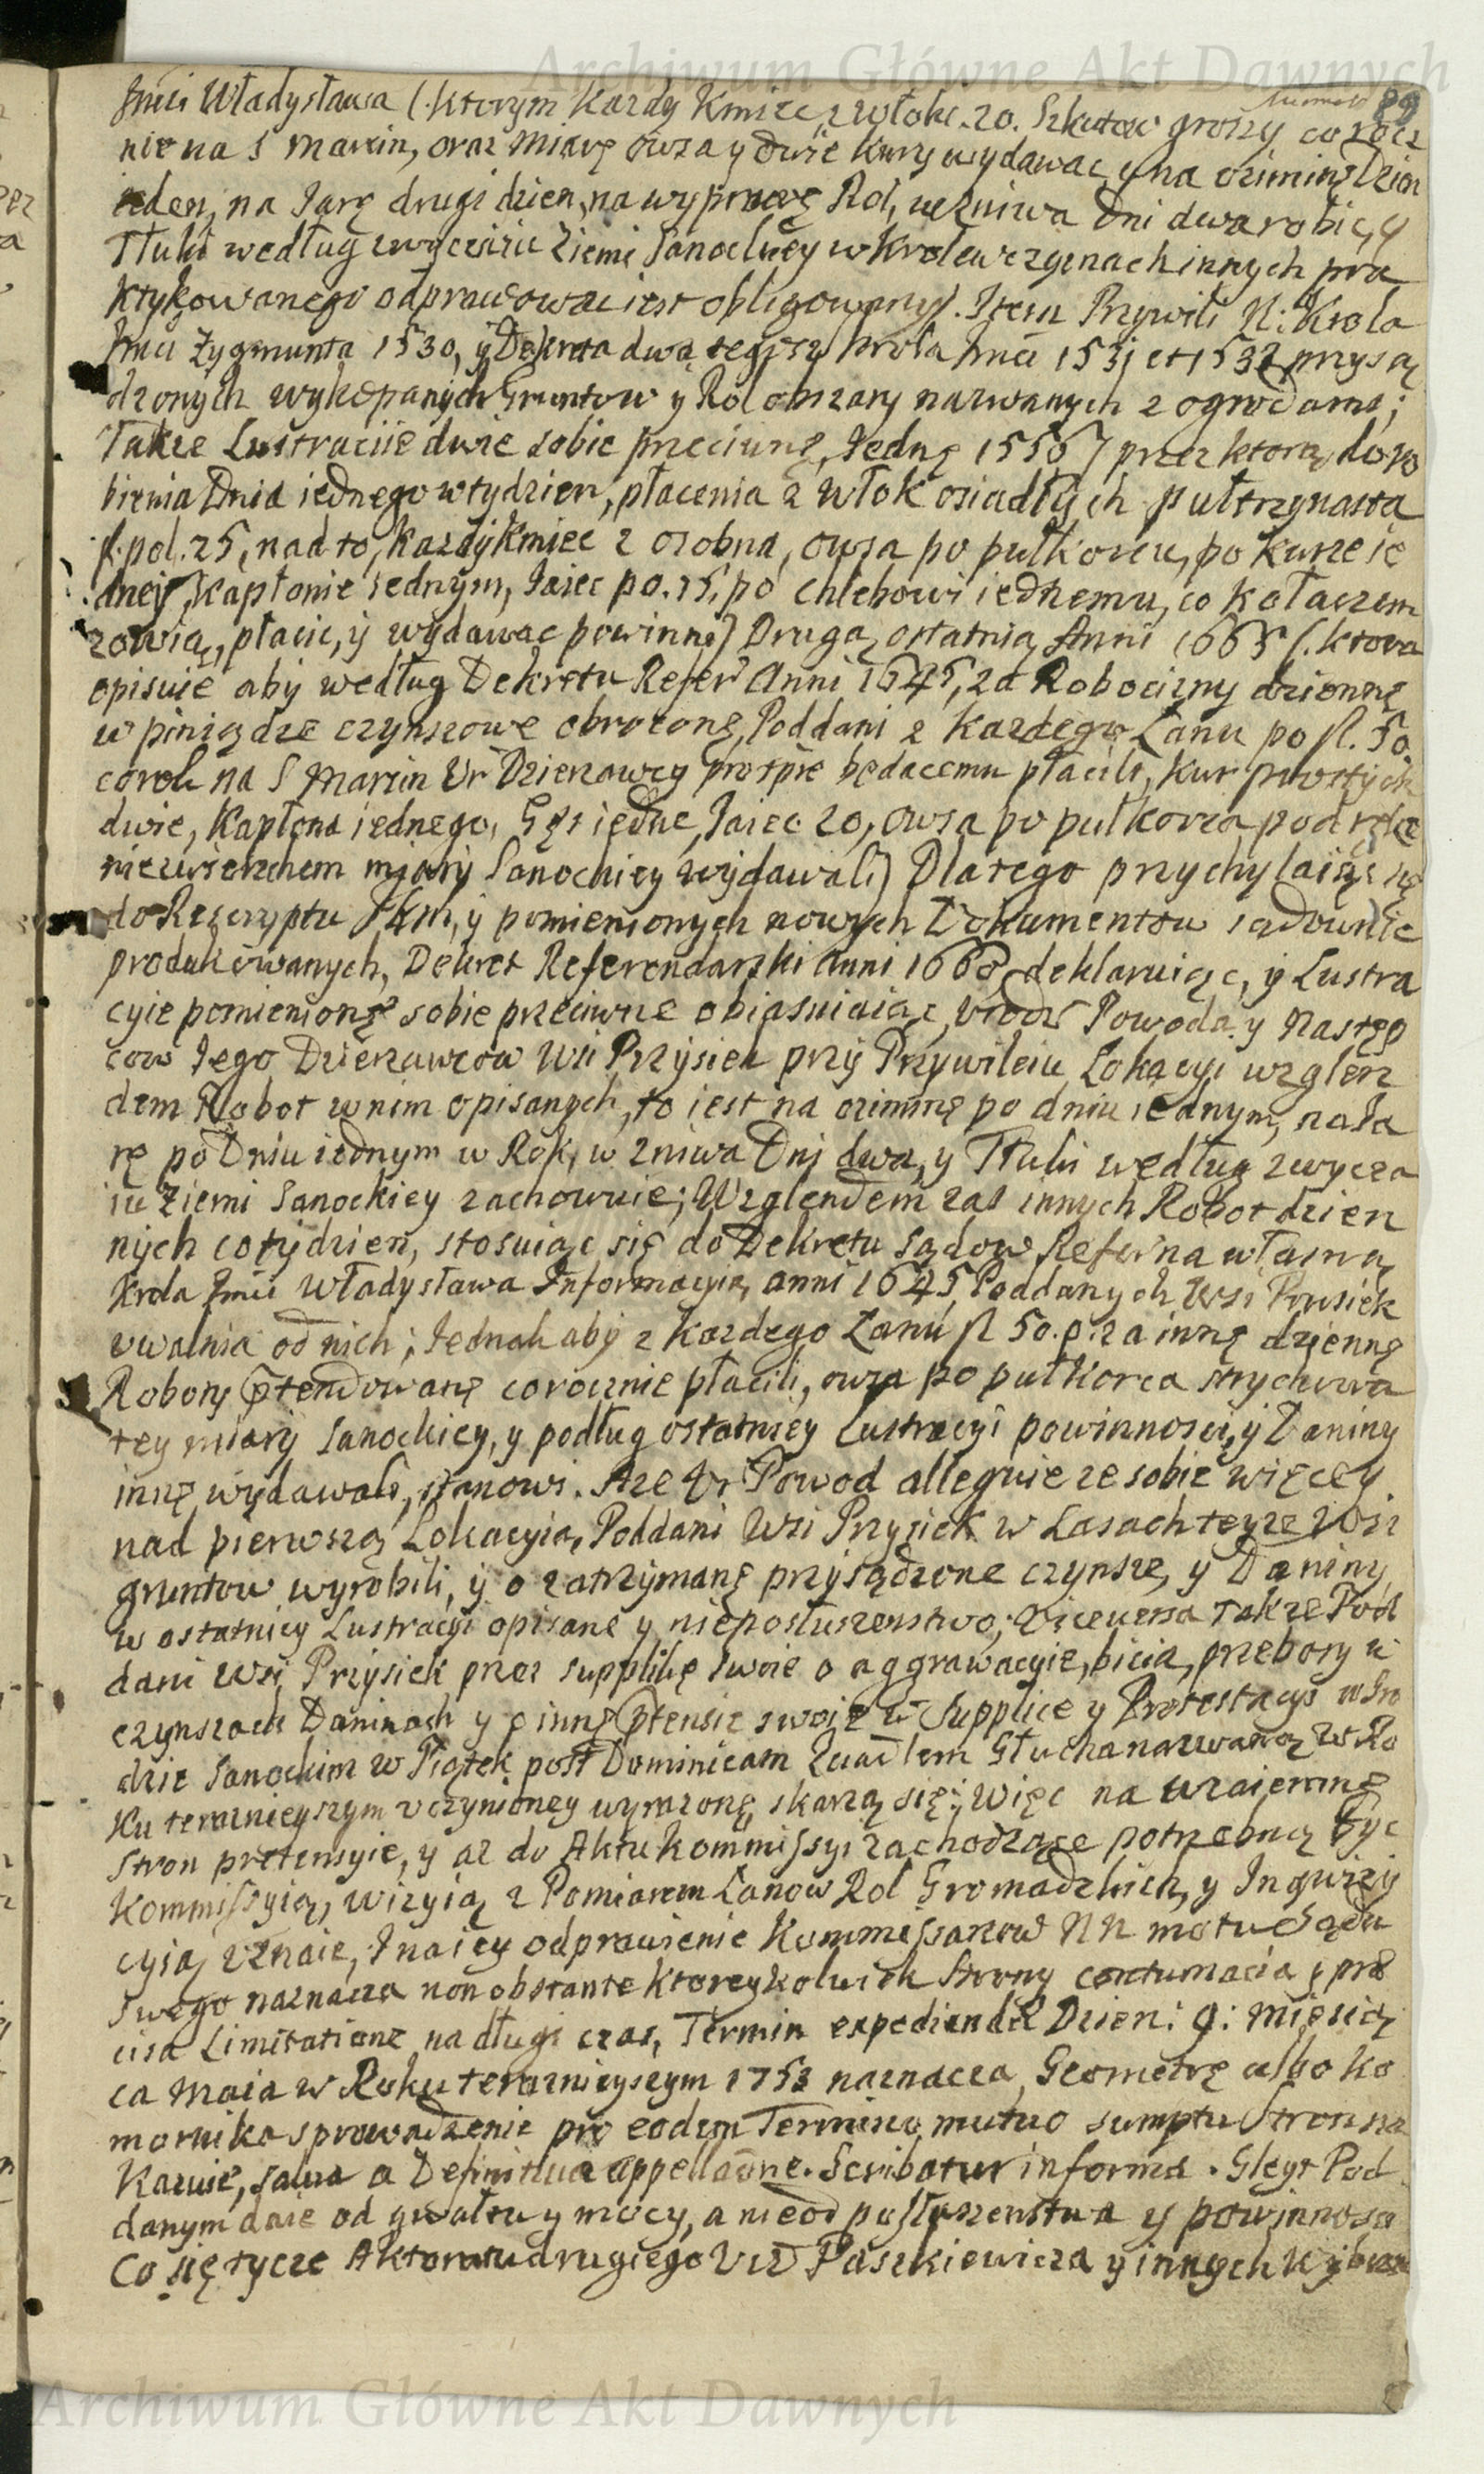 Archiwum Główne Akt Dawnych
89
Jmci Władysława (. ktorym Kazdy Kmiec z włoki .20. Szkutow groszy co rocz
nie na S Marcin, oraz Miarę owsa y dwie kury wydawac, y na oziminę Dzien
ieden, na Jarę drugi dzien, na wyprawę Rol, we zniwa Dni dwa robic, y
Tłuki według zwyczaiu Ziemi Sanockiey w Krolewszczyznach innych pra
ktykowanego odprawowac iest obligowany). Item Przywiley N: Krola
Jmci Zygmunta 1530, y Dekreta dwa tegosz Krola Jmci 1531 et 1532 przysą
dzonych wykopanych Gruntow y Rol obszary nazwanych z ogrodami;
Takze Lustraciie dwie sobie przeciwnę, Jednę 1556) przez ktorą do ro
bienia Dnia iednego w tydzien, płacenia z włok osiadłych pułtrzynasta
f. pol. 25, nad to, kazdy Kmiec z osobna, owsa po pułkorcu, po kurze ie
dney, Kapłonie iednym, Jaiec po .15, po chlebowi iednemu, co kołaczem
zowią, płacic, y wydawac powinni) Drugą ostatnią Anni 1665 (. ktora
opisuie aby według Dekretu Refer Anni 1645, za Robocizny dziennę
w piniądze czynszowe obroconę, Poddani z kazdego Łanu po fl. 50.
corok na S Marcin Ur Dzierzawcy pro tpre będacemu płacili, kur prostych
dwie, Kapłona iednego, Gęś iednę, Jaiec 20, owsa po pułkorca pod rękę
nie z wierzchem miary Sanockiey wydawali) Dlatego przychylaiąc się
do Rescryptu JKM, y pomienionych nowych Dokumentow sądownie
produkowanych, Dekret Referendarski Anni 1668 deklaruiąc, y Lustra
cyie pomienionę sobie przeciwne obiasniaiąc, Urodz Powoda y Następ
cow Jego Dzierzawcow Wsi Przysiek przy Przywileiu Lokacyi wzglen
dem Robot w nim opisanych, to iest na oziminę po dniu iednym, na Ja
rę po Dniu iednym w Rok, w zniwa Dni dwa, y Tłuki według zwycza
iu Ziemi Sanockiey zachowuie; Wzglendem zas innych Robot dzien
nych co tydzien, stosuiąc się do Dekretu Sądow Refer na własną
Krola Jmci Władysława Informacyią, anni 1645 Poddanych Wsi Prusiek
uwalnia od nich; Jednak aby z kazdego Łanu fl 50. p. za innę dziennę
Roboty ptendowanę corocznie płacili, owsa po pułkorca strychowa
tey miary Sanockiey, y podług ostatniey Lustracyi powinnosci, y Daniny
innę wydawali, stanowi. A ze Ur Powod alleguie ze sobie więcey
nad pierwszą Lokacyią, Poddani Wsi Przysiek w Lasach teyze Wsi
gruntow wyrobili, y o zatrzymanę przysądzone czynsze, y Daniny
w ostatniey Lustracyi opisanę y nieposłuszenstwo; Viceversa Takze Pod
dani Wsi Przysiek przez supplikę swoie o aggrawacyie, bicia, przebory w
czynszach Daninach y o innę ptensie swoie w Supplice y Protestacyi w Gro
dzie Sanockim w Piątek post Dominicam Quadlem Głucha nazwaną w Ro
ku teraznieyszym uczynioney wyrazonę, skarzą się; Więc na wzaiemnę
Stron pretensyie, y az do Aktu Kommissyi zachodzące potrzebną byc
Kommissyią, Wizyią z Pomiarem Łanow Rol Gromadzkich, y Inquizy
cyią uznaie, Jna iey odprawienie Kommissarzow NN motu Sądu
swego naznacza non obstante ktoreykolwiek strony contumacia, prae
cisa Limitatione na długi czas, Termin expediendae Dzien: 9: Miesią
ca Maia w Roku teraznieyszym 1753 naznacza, Geometrę albo ko
mornika sprowadzenie pro eodem Termino, mutuo sumptu Stron na
kazuie, salva a Definitiva appellaone. Scribatur in forma. Gleyt Pod
danym daie od gwałtu y mocy, a nie od posłuszenstwa y powinnosci
Co się tycze Aktoratu drugiego Urd Paszkiewicza y innych Wybran
Archiwum Główne Akt Dawnych